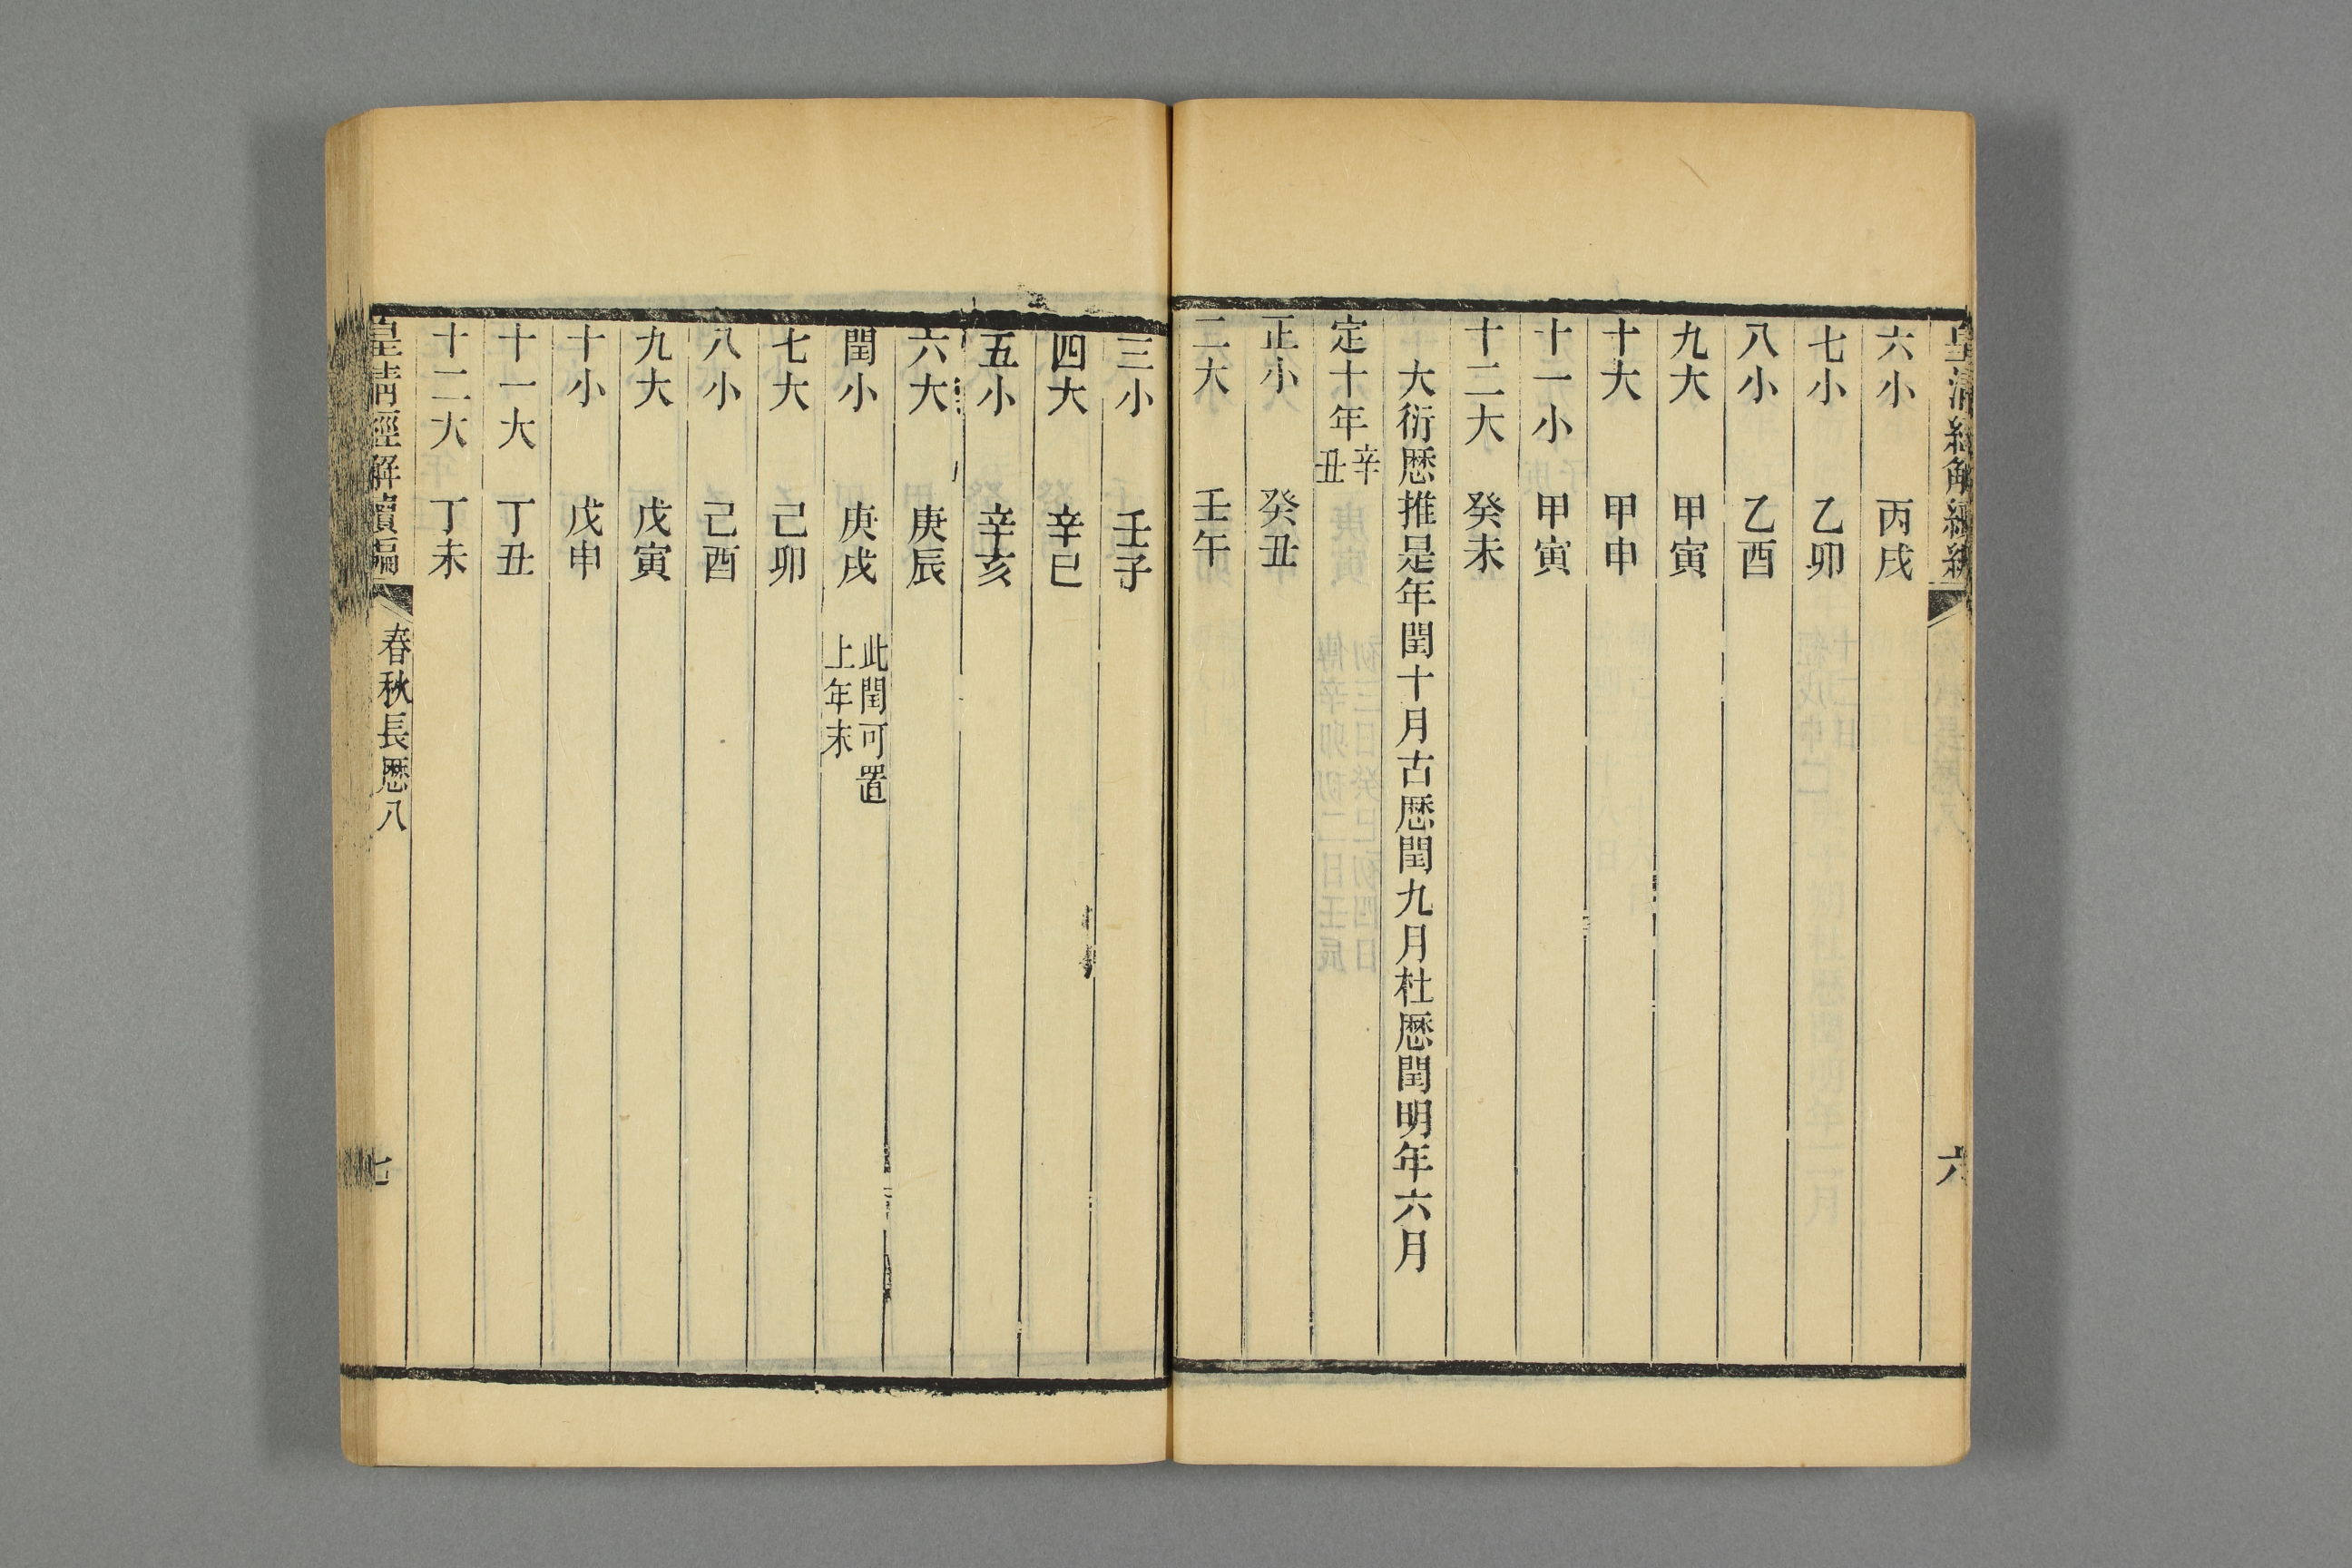 皇清經解續編
六
六小 丙戌
七小 乙卯
八小 乙酉
九大 甲寅
十大 甲申
十一小 甲寅
十二大 癸未
大衍厯推是年閏十月古厯閏九月杜厯閏明年六月
定十年辛丑
正小 癸丑
二大 壬午
三小 壬子
四大 辛巳
五小 辛亥
六大 庚辰
閏小 庚戌 此閏可置
上年末
七大 己卯
八小 己酉
九大 戊寅
十小 戊申
十一大 丁丑
十二大 丁未
皇清經解續編
春秋長厯八
七